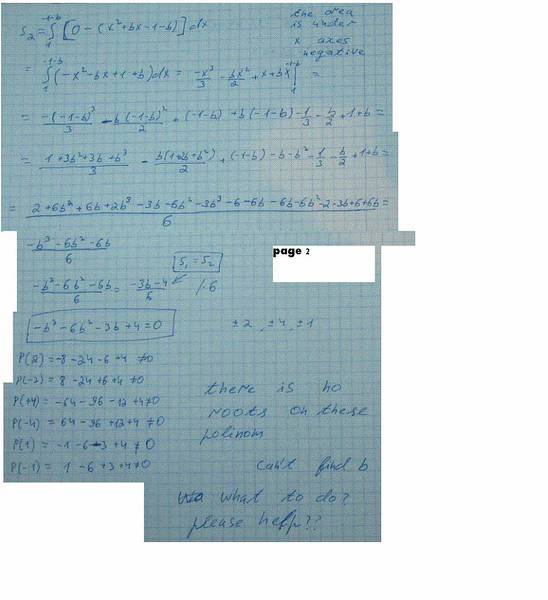 S₂ = ∫₁^(-1-b) [0 - (x² + bx - 1 - b)] dx
the area
is under
x axes
negative
= ∫₁^(-1-b) (-x² - bx + 1 + b) dx = -x³/3 - bx²/2 + x + bx |₁^(-1-b) =
= -(-1-b)³/3 - b(-1-b)²/2 + (-1-b) + b(-1-b) - 1/3 - b/2 + 1 + b =
= (1 + 3b² + 3b + b³)/3 - b(1+2b+b²)/2 + (-1-b) - b - b² - 1/3 - b/2 + 1 + b =
= (2 + 6b² + 6b + 2b³ - 3b - 6b² - 3b³ - 6 - 6b - 6b - 6b² - 2 - 3b + 6 + 6b)/6 =
(-b³ - 6b² - 6b)/6
page 2
S₁ = S₂
(-b³ - 6b² - 6b)/6 = (-3b - 4)/6 /·6
-b³ - 6b² - 3b + 4 = 0
±2, ±4, ±1
P(2) = -8 - 24 - 6 + 4 ≠ 0
P(-2) = 8 - 24 + 6 + 4 ≠ 0
P(+4) = -64 - 96 - 12 + 4 ≠ 0
P(-4) = 64 - 96 + 12 + 4 ≠ 0
P(1) = -1 - 6 - 3 + 4 ≠ 0
P(-1) = 1 - 6 + 3 + 4 ≠ 0
there is no
roots on these
polinom
can't find b
what to do?
please help??